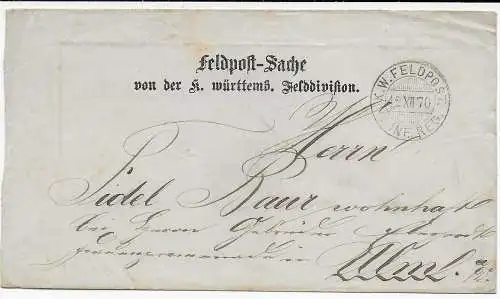 Feldpost-Sache
von der K. württemb. Felddivision.
K.W. FELDPOST
2 XII 70
INF. REG.
Herrn
Fidel Baur wohnhaft
bei Herrn Gebrüder
in Ulm